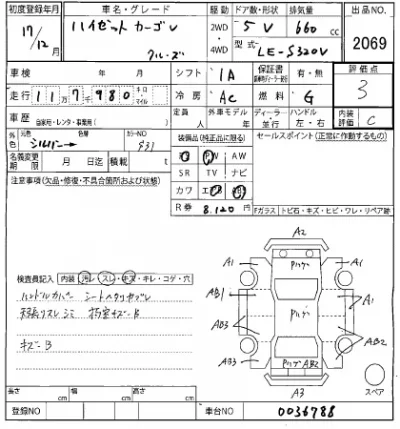 初度登録年月 車名・グレード 駆動 ドア数・形状 排気量 出品NO.
17/12月 ハイゼットカーゴ V 2WD ・ 4WD 5 V 660 cc 2069
クルーズ 型式 LE-S320V
車検 年 月 シフト 1A 保証書 有・無 評価点
走行 1 1 万 7 千 9 8 0 キロ マイル 冷房 AC 燃料 G 3
車歴 自家用・レンタ・事業用( ) 定員 人 外車モデル 年 ディーラー 並行 ハンドル 左・右 内装評価 C
外色 元色 シルバー→ 色替 カラーNO S31 装備品(純正品に限る) セールスポイント(正常に作動するもの)
PW AW
名義変更期限 月 日迄 積載 t SR TV ナビ
注意事項(欠品・修復・不具合箇所および状態) カワ
R券 8,120円
Fガラス トビ石・キズ・ヒビ・ワレ・リペア跡
A2
A1 A1
検査員記入 内装 汚レ・スレ・キズ・キレ・コゲ・穴
AB1 A1
ハンドルカバー シートヘタリヤブレ
天張リスレ シミ 内室キズB
AB3 AB2
キズB
AB3 AB2
A3
スペア
長さ cm 幅 cm 高さ cm
登録NO 車台NO 0036788